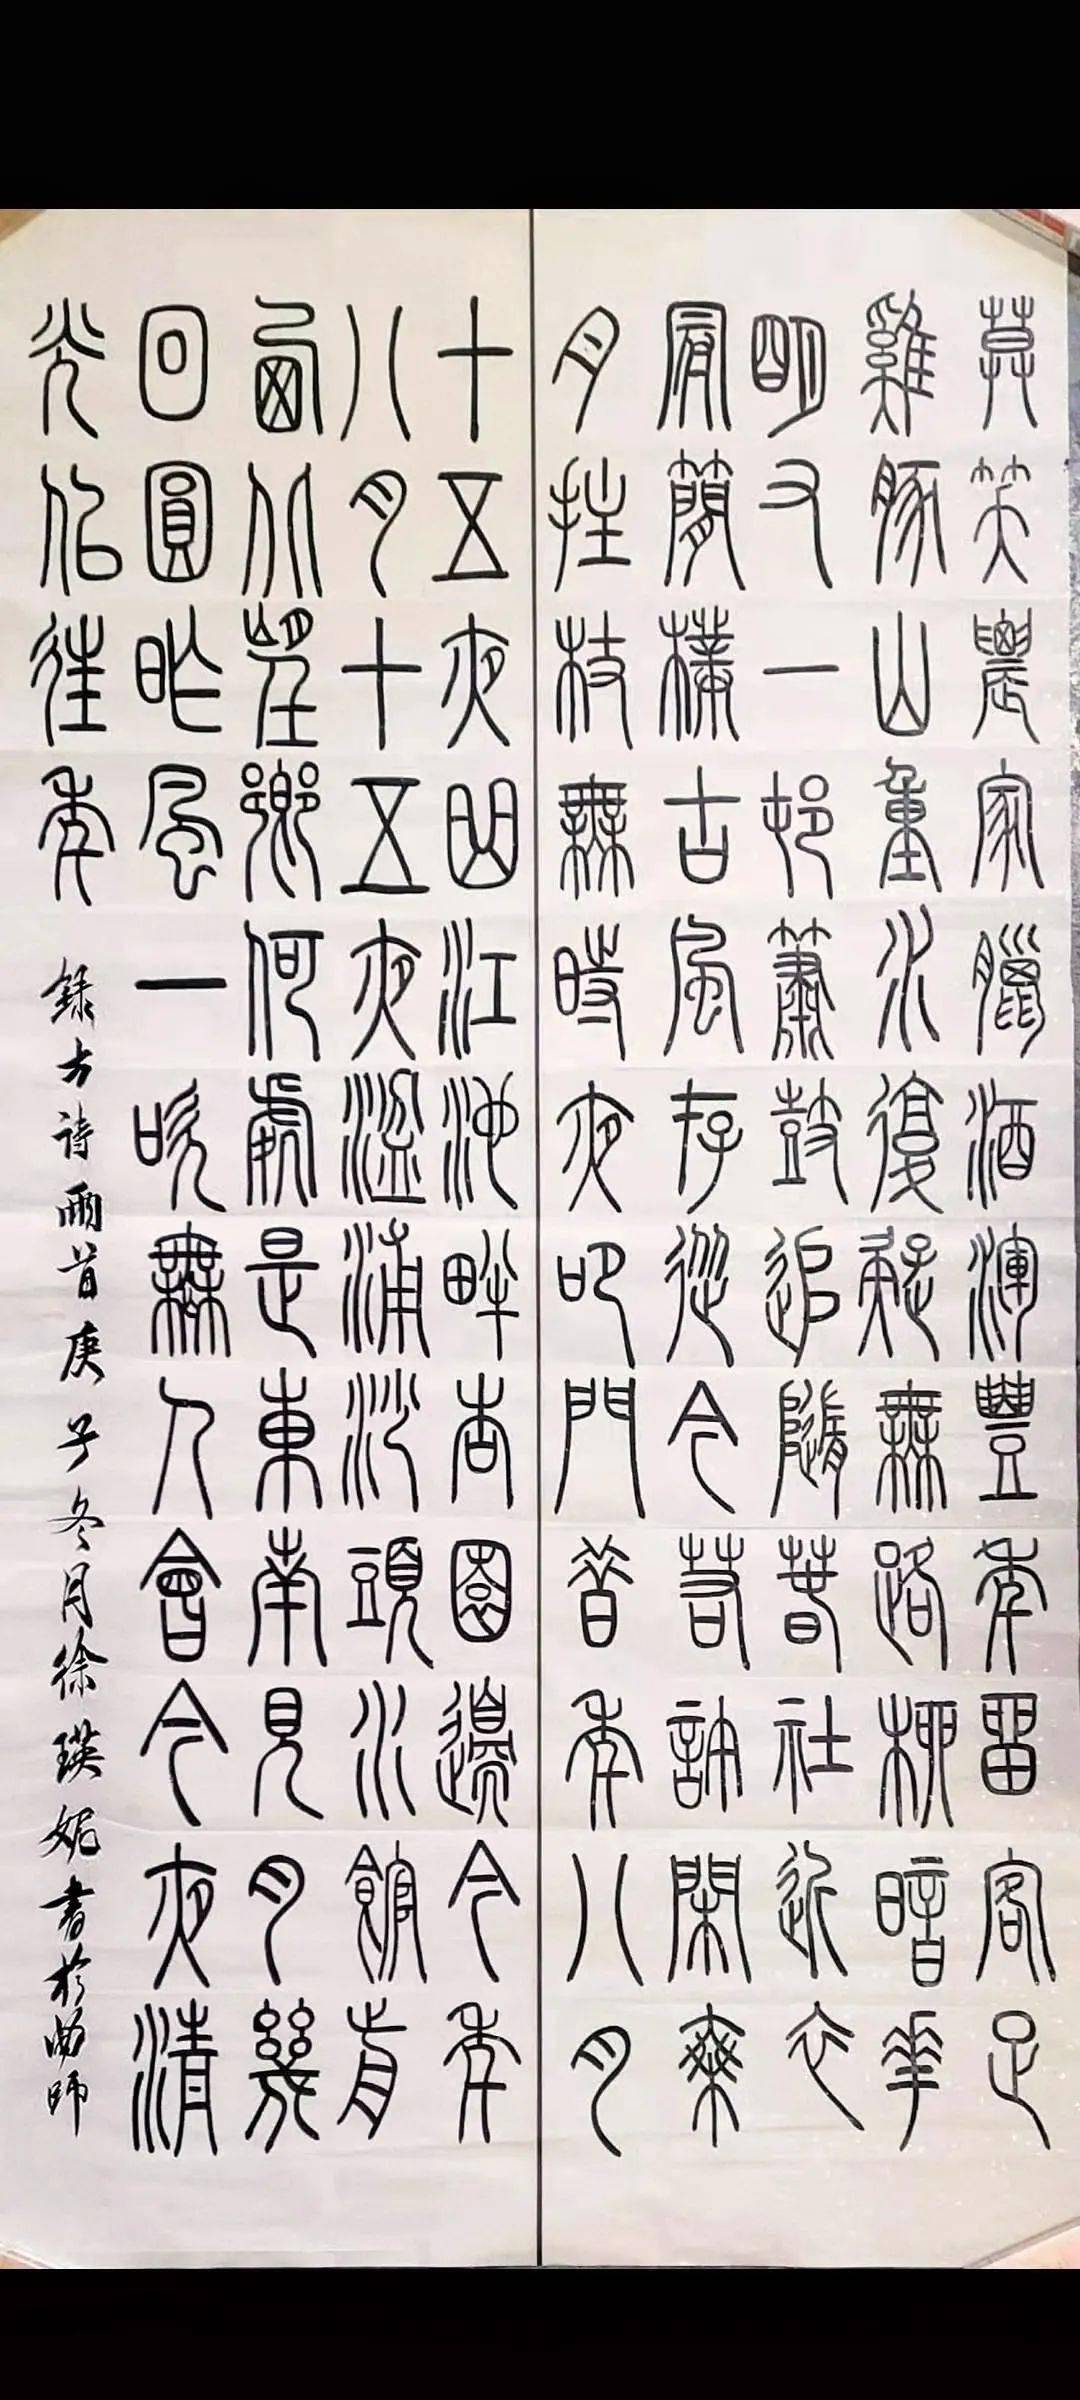 莫笑農家臘酒渾豐年留客足
雞豚山重水復疑無路柳暗華
明又一邨簫鼓追隨春社近衣
冠簡樸古風存從今若許閑乘
月拄杖無時夜叩門昔年八月
十五夜曲江池畔杏園邊今年
八月十五夜湓浦沙頭水館前
西北望鄉何處是東南見月幾
回圓昨風一吹無人會今夜清
光佀往年 録古詩兩首庚子冬月徐瑛妮書於曲師